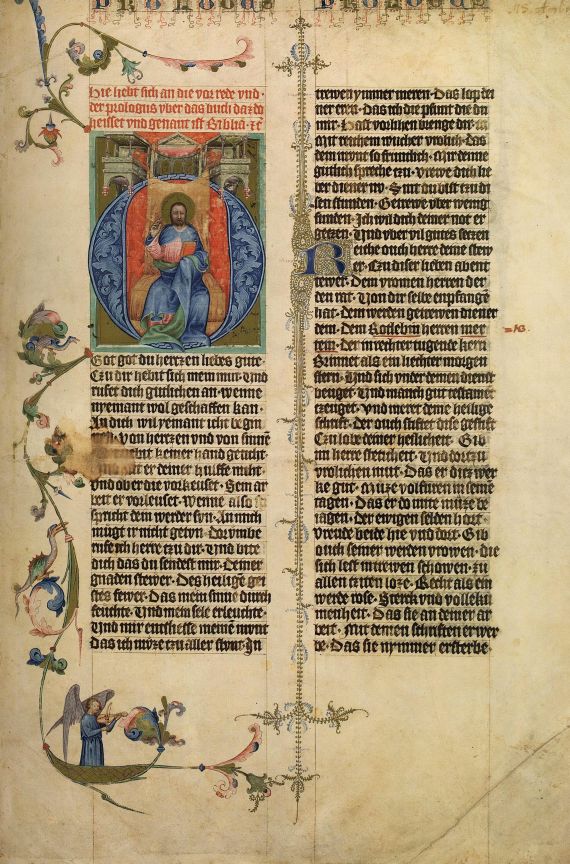 PROLOGUS PROLOGUS
Hie hebt sich an die vor rede vnd
der prologus vber das buch daz do
heisset vnd genant ist Biblia
Got got du hertzen liebes gute
Czu dir hebit sich mein mut Vnd
rufet dich gutlichen an wenne
nyemant wol geschaffen kan
An dich wil yemant icht begin
Von hertzen vnd von sinne
keiner hand geticht
er deiner hulffe nicht
vnd ob er die vorkeuset Sein ar
beit er vorleuset Wenne also
spricht dem werder syn An mich
mugt ir nicht getun Dor vmbe
rufe ich herre czu dir Vnd bite
dich das du sendest mir Deiner
gnaden stewer Des heilige gei
stes fewer Das mein sinne durch
feuchte Vnd mein sele erleuchte
Vnd mir entslisse meinen mvnt
Das ich mvze czu aller stvnt In
trewen ymmer meren Das lop dei
ner eren Das ich die pfunt die du
mir Hast vorlihen brenge
mit reichem wucher vrolich Das
dein mvnt so fruntlich Mir denne
gutlich spreche czu Vrewe dich lie
ber diener nv Sint du bist czu di
sen stunden Getrewe vber wenig
funden Ich wil dich deiner not er
getzen Vnd vber vil gutes setzen
Reiche ouch herre deine stew
er Czu diser lieben abent
tewer Dem vromen herren der
den rat Von dir selbe enpfange
hat Dem werden getrewen diener
dein Dem Rotlebin herren mer
tein Der in rechter tugende kern
Brinnet als ein liechter morgen
stern Vnd sich vnder deinen dienst
beuget Vnd manch gut testament
czeuget Vnd meret deine heilige
schrift Der ouch stiftet dise gestift
Czu lobe deiner heilicheit Gib
im herre stetickeit Vnd dortzu
vrolichen mut Das er ditz wer
ke gut Muze volfuren in seinen
tagen Das er do mite muze be
iagen Der ewigen selden hort
Vreude beide hie vnd dort Gib
ouch seiner werden vrowen die
sich lest in trewen schowen Czu
allen czeiten loze Recht als ein
werde rose Sterck vnd volleku
menheit Das sie an deiner ar
beit Mit deinen schriften erwer
be Das sie nymmer ersterbe